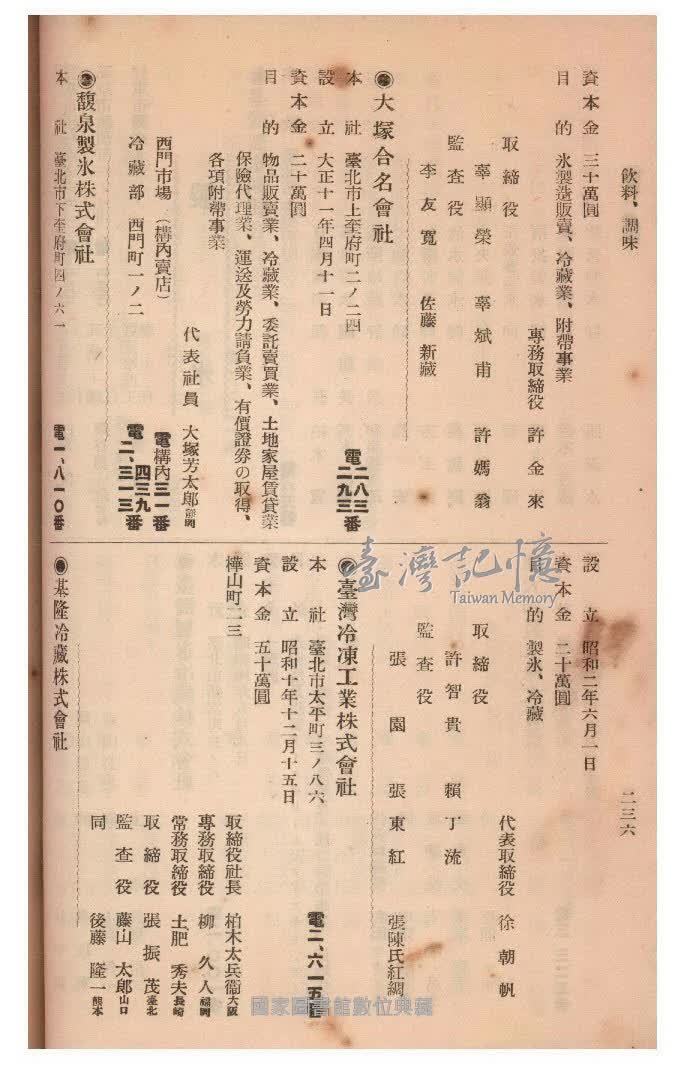 飲料、調味
二三六
資本金 三十萬圓
目的 氷製造販賣、冷藏業、附帶事業
專務取締役 許金來
取締役
辜顯榮 辜斌甫 許媽翁
監査役
李友寬 佐藤新藏
◉大塚合名會社
電二八三 二九三番
本社 臺北市上奎府町二ノ二四
設立 大正十一年四月十一日
資本金 二十萬圓
目的 物品販賣業、冷藏業、委託賣買業、土地家屋賃貸業
保險代理業、運送及勞力請負業、有價證券の取得、
各項附帶事業
代表社員 大塚芳太郎 靜岡
西門市場(構內賣店) 電構內三一番
冷藏部 西門町一ノ二 電四三九 二、三一三番
◉馥泉製氷株式會社
本社 臺北市下奎府町四ノ六一 電一、八一〇番
設立 昭和二年六月一日
資本金 二十萬圓
目的 製氷、冷藏
代表取締役 徐朝帆
取締役
許智貴 賴丁流
監査役
張園 張東紅 張陳氏紅綢
◉臺灣冷凍工業株式會社
本社 臺北市太平町三ノ八六 電二、六一五番
設立 昭和十年十二月十五日
資本金 五十萬圓
樺山町二三
取締役社長 柏木太兵衞 大阪
專務取締役 柳久人 福岡
常務取締役 土肥秀夫 長崎
取締役 張振茂 臺北
監査役 藤山太郎 山口
同 後藤隆一 熊本
◉基隆冷藏株式會社
臺灣記憶
Taiwan Memory
國家圖書館數位典藏